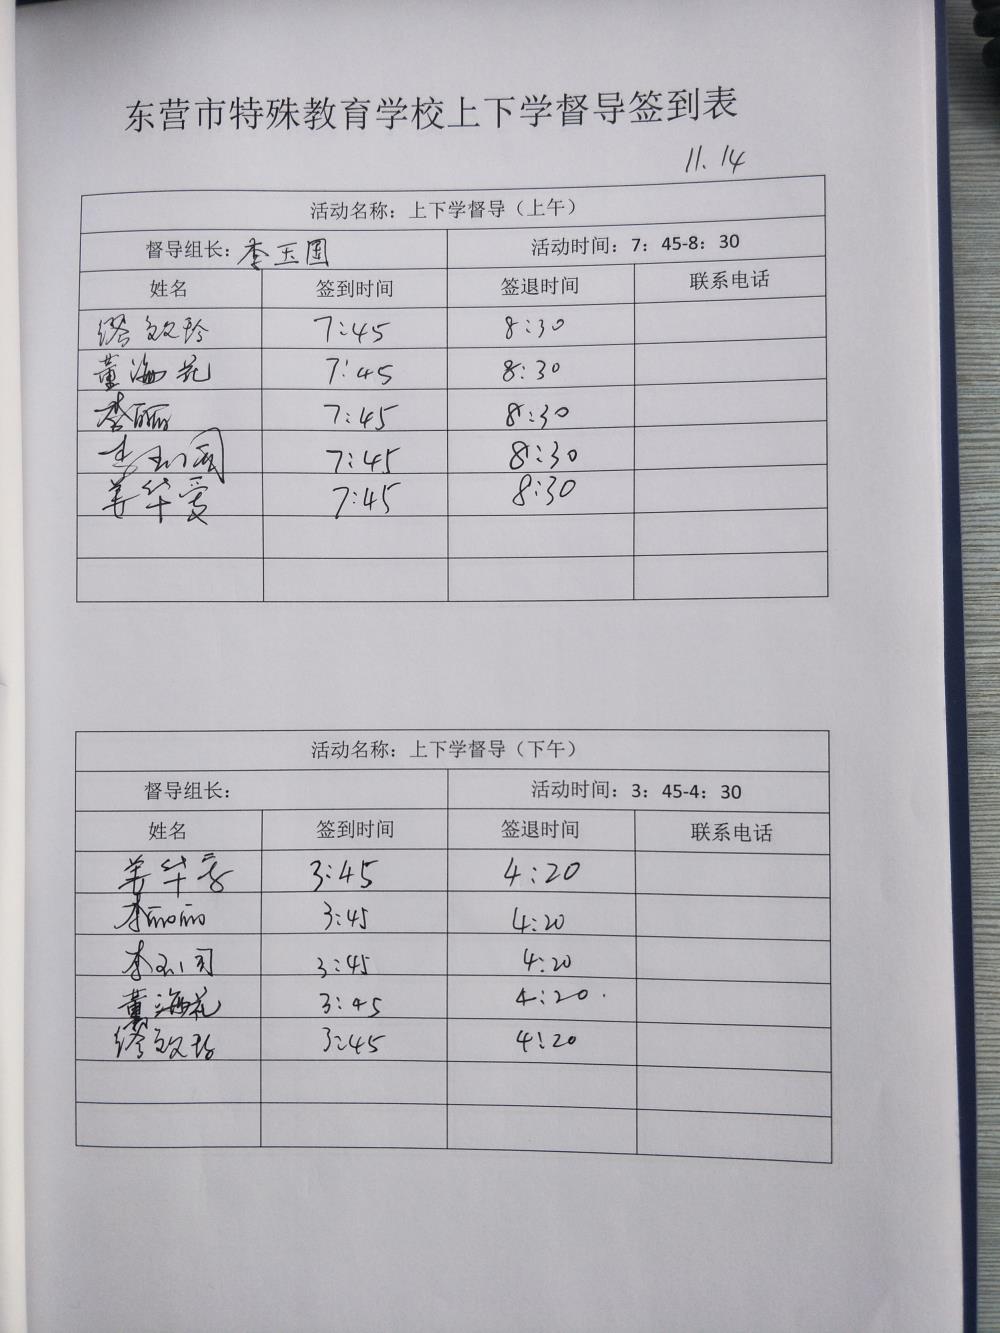 东营市特殊教育学校上下学督导签到表
11.14
活动名称：上下学督导（上午）
督导组长：李玉国 活动时间：7：45-8：30
姓名 签到时间 签退时间 联系电话
缪敏玲 7:45 8:30
董海花 7:45 8:30
李丽丽 7:45 8:30
李玉国 7:45 8:30
姜华爱 7:45 8:30
活动名称：上下学督导（下午）
督导组长： 活动时间：3：45-4：30
姓名 签到时间 签退时间 联系电话
姜华爱 3:45 4:20
李丽丽 3:45 4:20
李玉国 3:45 4:20
董海花 3:45 4:20.
缪敏玲 3:45 4:20